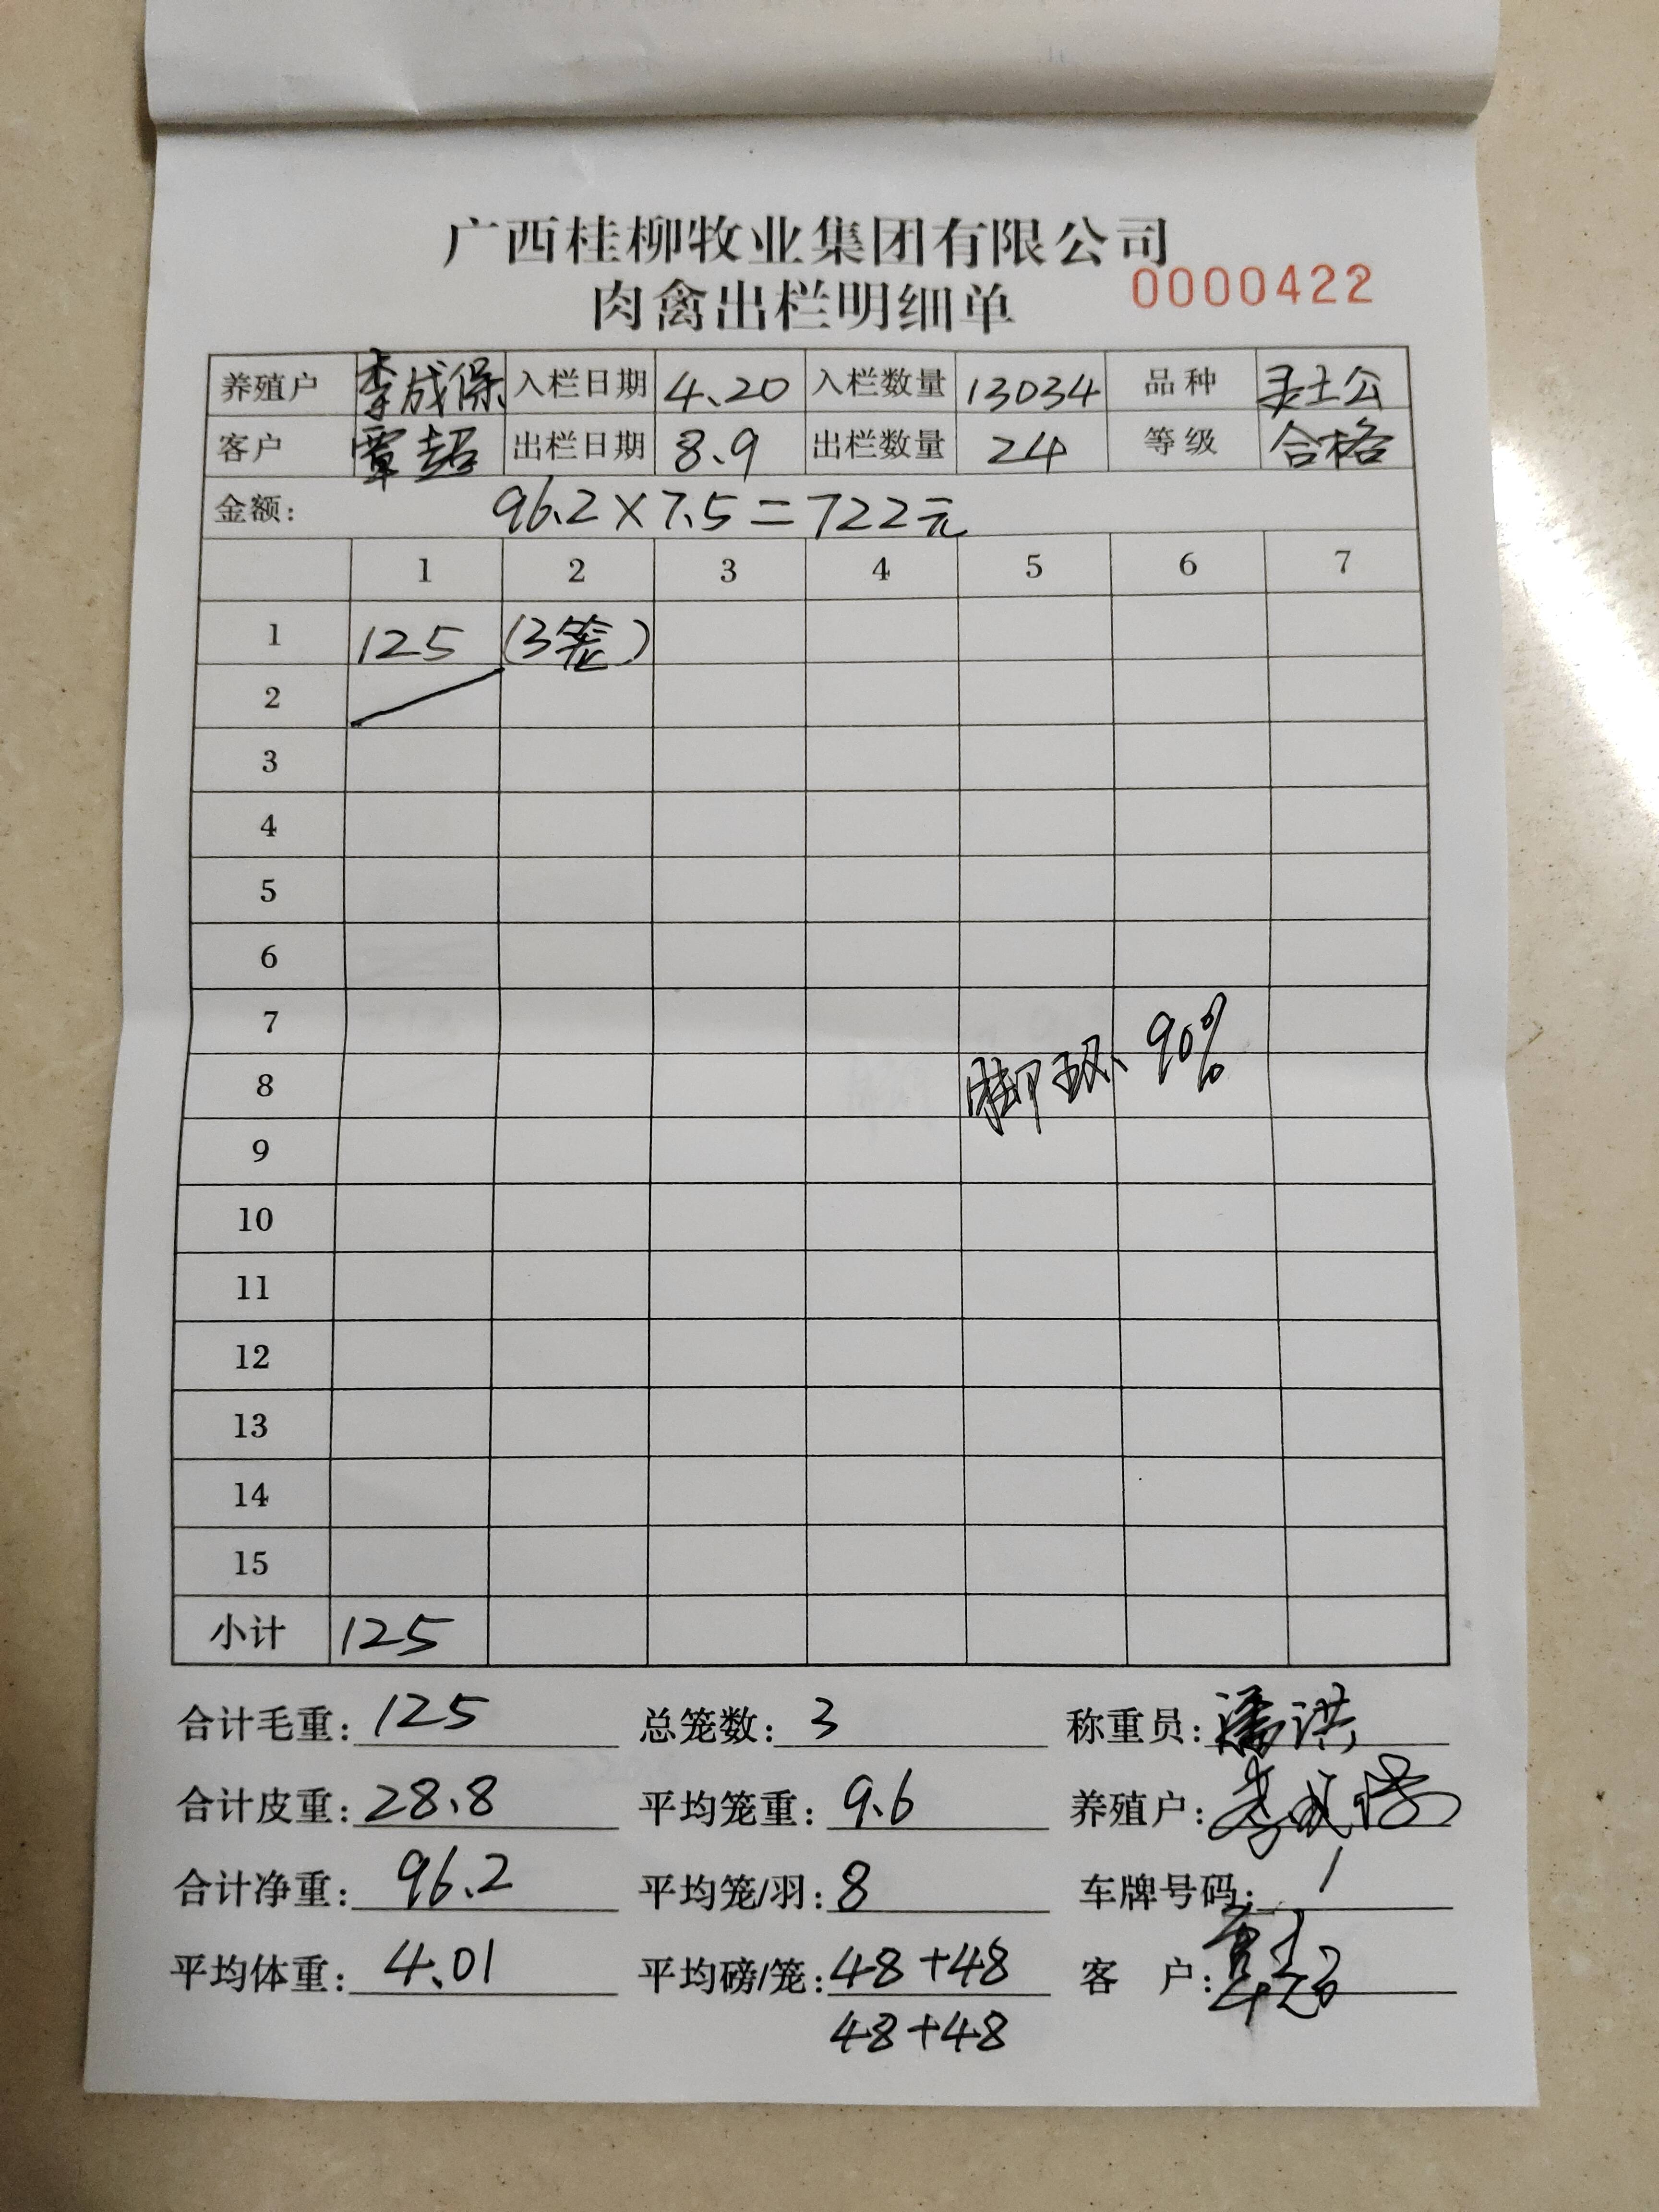 广西桂柳牧业集团有限公司
肉禽出栏明细单 0000422
养殖户 李成保 入栏日期 4.20 入栏数量 13034 品种 灵土公
客户 覃超 出栏日期 8.9 出栏数量 24 等级 合格
金额: 96.2×7.5=722元
1 2 3 4 5 6 7
1 125 (3笼)
2
3
4
5
6
7
脚环、90%
8
9
10
11
12
13
14
15
小计 125
合计毛重: 125 总笼数: 3 称重员: 潘洪
合计皮重: 28.8 平均笼重: 9.6 养殖户: 李成保
合计净重: 96.2 平均笼/羽: 8 车牌号码: /
平均体重: 4.01 平均磅/笼: 48+48 客 户: 覃超
48+48